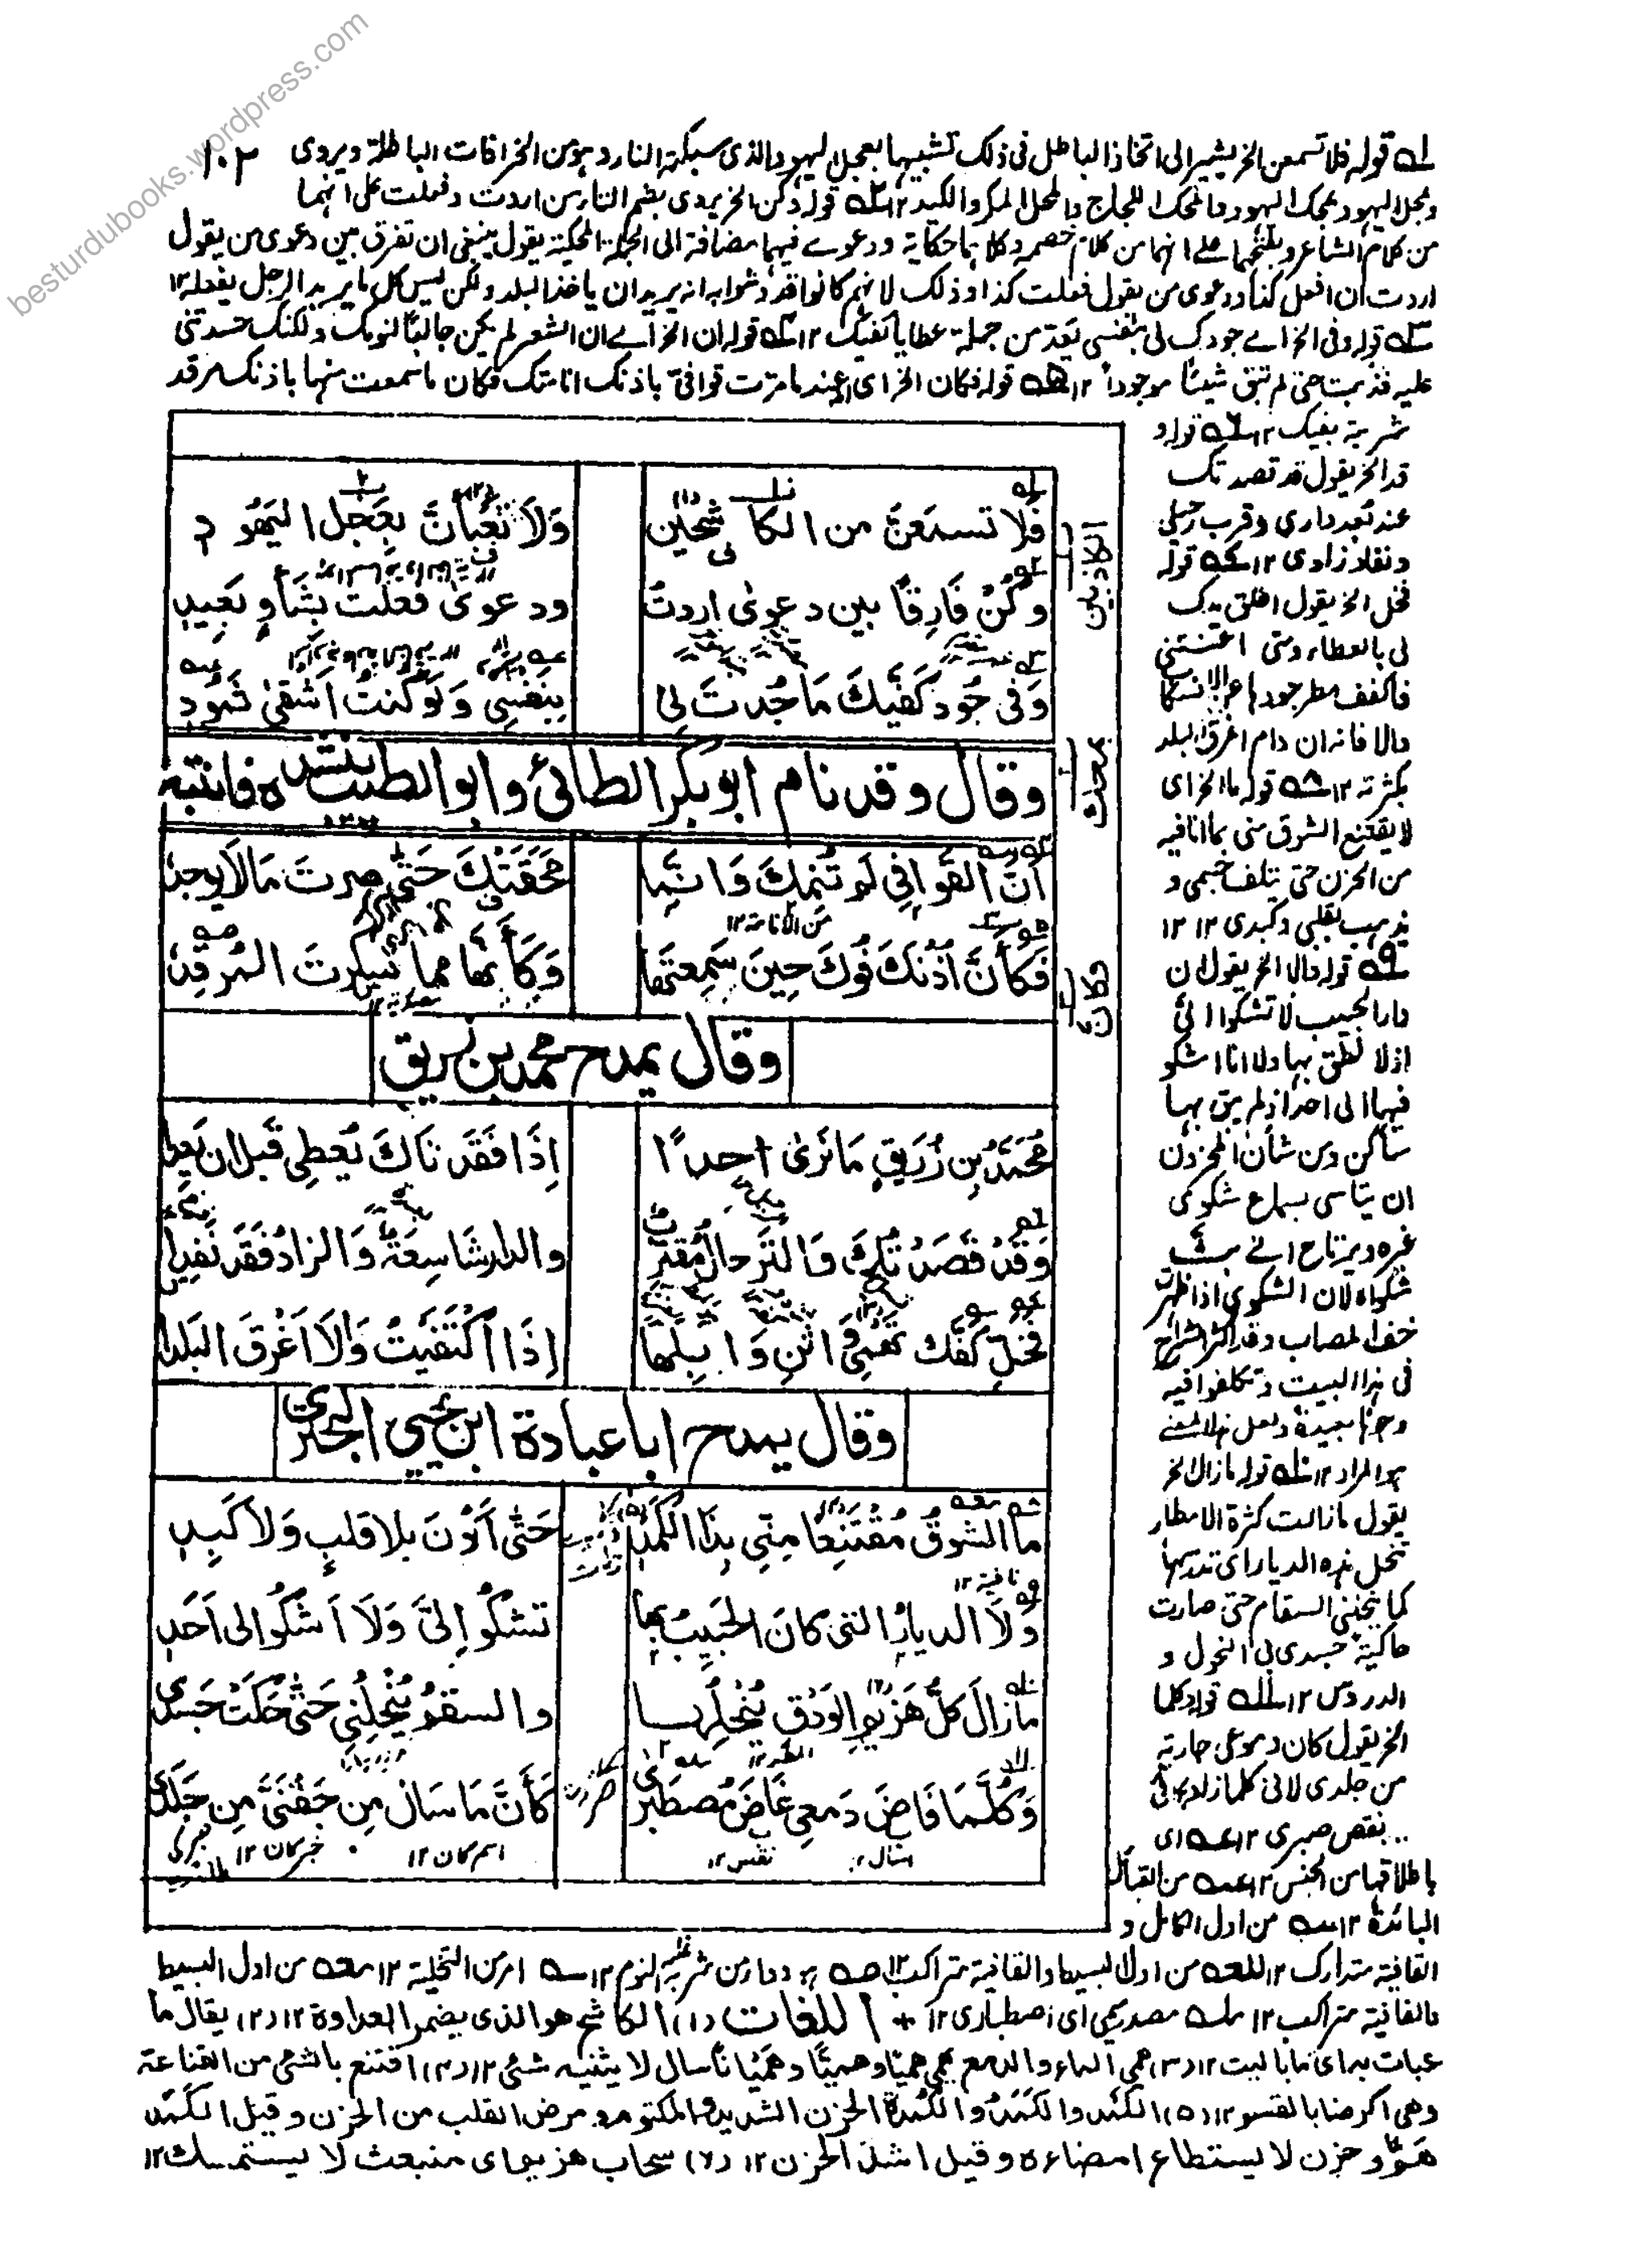 besturdubooks.wordpress.com
١٠٢
له قوله فلا تسمعن الخ يشير الى اتخاذ الباطل فى ذلك تشبيها بعجل اليهود الذى سبكته النار وهو من الخرافات الباطلة ويروى
وعجل اليهود بمحك اليهود والمحك اللجاج والمحل المكر والكيد ١٢ قوله وكن الخ يروى بضم التاء من اردت وفعلت على انهما
من كلام الشاعر وبفتحهما على انهما من كلام خصمه وكلاهما حكاية ودعوى فيهما مضافة الى الجملة المحكية يقول ينبغى ان تفرق بين دعوى من يقول
اردت ان افعل كذا ودعوى من يقول فعلت كذا وذلك لانهم كانوا قد وشوا به انه يريد ان ياخذ البلد ولكن ليس كل ما يريد الرجل يفعله ١٢
قوله وفى الخ اے جودك لى بنفسى يعد من جملة عطايا كفيك ١٢ قوله ان الخ اے ان الشعر لم يكن جالبًا لنومك ولكنك حسدتنى
عليه فذبت حتى لم تبق شيئًا موجودا ١٢ قوله فكان الخ اى عند ما مرت قوافىّ باذنك انامتك فكان ما سمعت منها باذنك مرقد
شربته بفيك ١٢ قوله و
قد الخ يقول قد قصدتك
عند بُعد دارى وقرب رحيلى
ونفاد زادى ١٢ قوله
فخل الخ يقول اطلق يدك
لى بالعطاء ومتى اغنيتنى
فاكفف مطر جودها عن الانسكاب
والا فانه ان دام اغرق البلد
بكثرته ١٢ قوله ما الخ اى
لا يقتنع الشوق منى بما انا فيه
من الحزن حتى يتلف جسمى و
يذهب بقلبى وكبدى ١٢
قوله ولا الخ يقول ان
دار الحبيب لا تشكو الىّ
اذ لا نطق بها ولا انا اشكو
فيها الى احد اذ لم يبق بها
ساكن ومن شان المحزون
ان يتاسى بسماع شكوى
غيره ويرتاح الى بث
شكواه لان الشكوى اذا ظهرت
خف المصاب وقد اكثر الشراح
فى هذا البيت وتكلفوا فيه
وجوها بعيدة ولعل هذا المعنى
هو المراد ١٢ قوله ما زال الخ
يقول ما زالت كثرة الامطار
تنحل هذه الديار اى تدرسها
كما ينحلنى السقام حتى صارت
حاكية جسدى فى النحول و
الدروس ١٢ قوله وكلما
الخ يقول كان دموعى جارية
من جلدى لانى كلما زاد بكائى
نقص صبرى ١٢ اى
باطلاقها من الحبس ١٢ من القبائل
البائدة ١٢ من اول الكامل و
فَلا تسمَعَنَّ من الكاشحين
وَلَا تَعْبَأَنَّ بِعِجلِ اليَهُود
وكُنْ فَارِقًا بين دعوى اردتُ
ودعوى فعلتُ بِشَأوٍ بَعِيدِ
وَفى جُودِ كَفَّيكَ مَا جُدتَ لِى
بِنَفسِى وَلَو كنتُ اَشقىٰ ثَمُودِ
وقال وقد نام ابو بكر الطائى وابو الطيب ينشده فانتبه
اِنَّ القَوَافِى لَم تُنِمكَ وَاِنَّمَا
مَحَقَتكَ حَتّٰى صِرتَ مَالَا يُوجدُ
من الانامة ١٢
فَكَأَنَّ اُذْنَكَ فُوكَ حِينَ سَمِعتَها
وَكَأَنَّها مما سكِرتَ المُرقِدُ
وقال يمدح محمد بن زريق
مُحَمَّدُ بن زُرَيقٍ مَا نَرٰى احدًا
اِذَا فَقَدنَاكَ يُعطِى قَبلَ ان يَعِدا
وَقَد قَصَدتُكَ وَالتَرحالُ مُقتَرِبٌ
والدار شَاسِعَةٌ وَالزادُ قَد نَفِدا
فخَلِّ كَفَّكَ تَهمِى وَاثنِ وَابِلَها
اِذَا اكْتَفَيتُ وَاِلَّا اَغْرَقَ البَلَدا
وقال يمدح ابا عبادة ابن يحيى البحترى
ما الشوقُ مُقْتَنِعًا مِنّى بِذَا الكَمَدِ
حَتّٰى اَكُونَ بلا قلبٍ وَلا كَبِدِ
نافية ١٢
وَلَا الديارُ التى كانَ الحَبِيبُ بها
تشكُو اِلَىَّ وَلَا اَشكُو الى اَحَدِ
مازالَ كلُّ هَزِيمِ الوَدْقِ يُنْحِلُها
والسقمُ يُنْحِلُنِى حَتّٰى حَكَتْ جَسَدِى
وَكُلَّمَا فَاضَ دَمعِى غَاضَ مُصطَبَرى
كَأَنَّ مَا سَالَ مِن جَفْنَىَّ مِن جَلَدِى
سال ١٢
نقص ١٢
اسم كان ١٢
خبر كان ١٢
القافية متدارك ١٢ من اول البسيط والقافية متراكب ١٢
امر من التخلية ١٢ من اول البسيط
والقافية متراكب ١٢ مصدر ميمى اى اصطبارى ١٢ + اللغات (١) الكاشح هو الذى يضمر العداوة ١٢ (٢) يقال ما
عبات به اى ما باليت ١٢ (٣) همى الماء والدمع يهمى هميًا وهميًّا وهميانًا سال لا يثنيه شئ ١٢ (٤) اقتنع بالشئ من القناعة
وهى الرضا بالقسم ١٢ (٥) الكَمْد والكَمَدُ والكُمْدة الحزن الشديد والمكتوم و مرض القلب من الحزن وقيل الكَمَد
هَمٌّ وحزن لا يستطاع امضاءه وقيل اشد الحزن ١٢ (٦) سحاب هزيم اى منبعث لا يستمسك ١٢